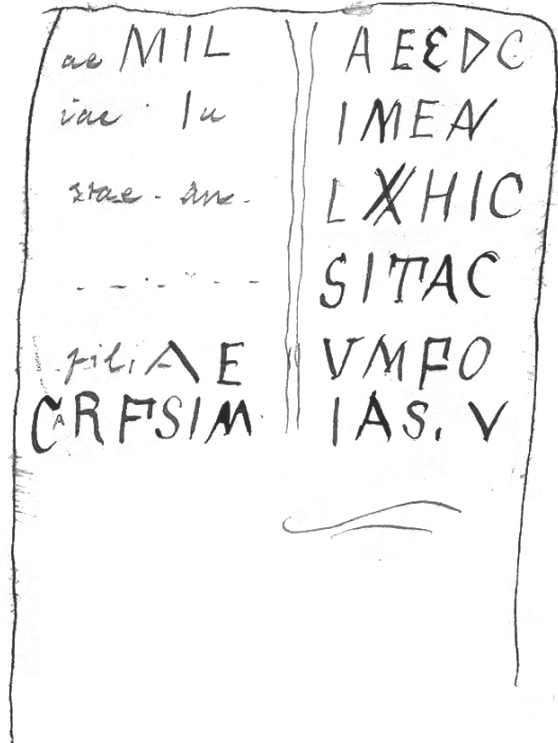 ae MIL
iae · Iu
stae · an ·
filiAE
CARFSIM
AEEDC
IMEN
LXXHIC
SITAC
VMFO
IAS. V